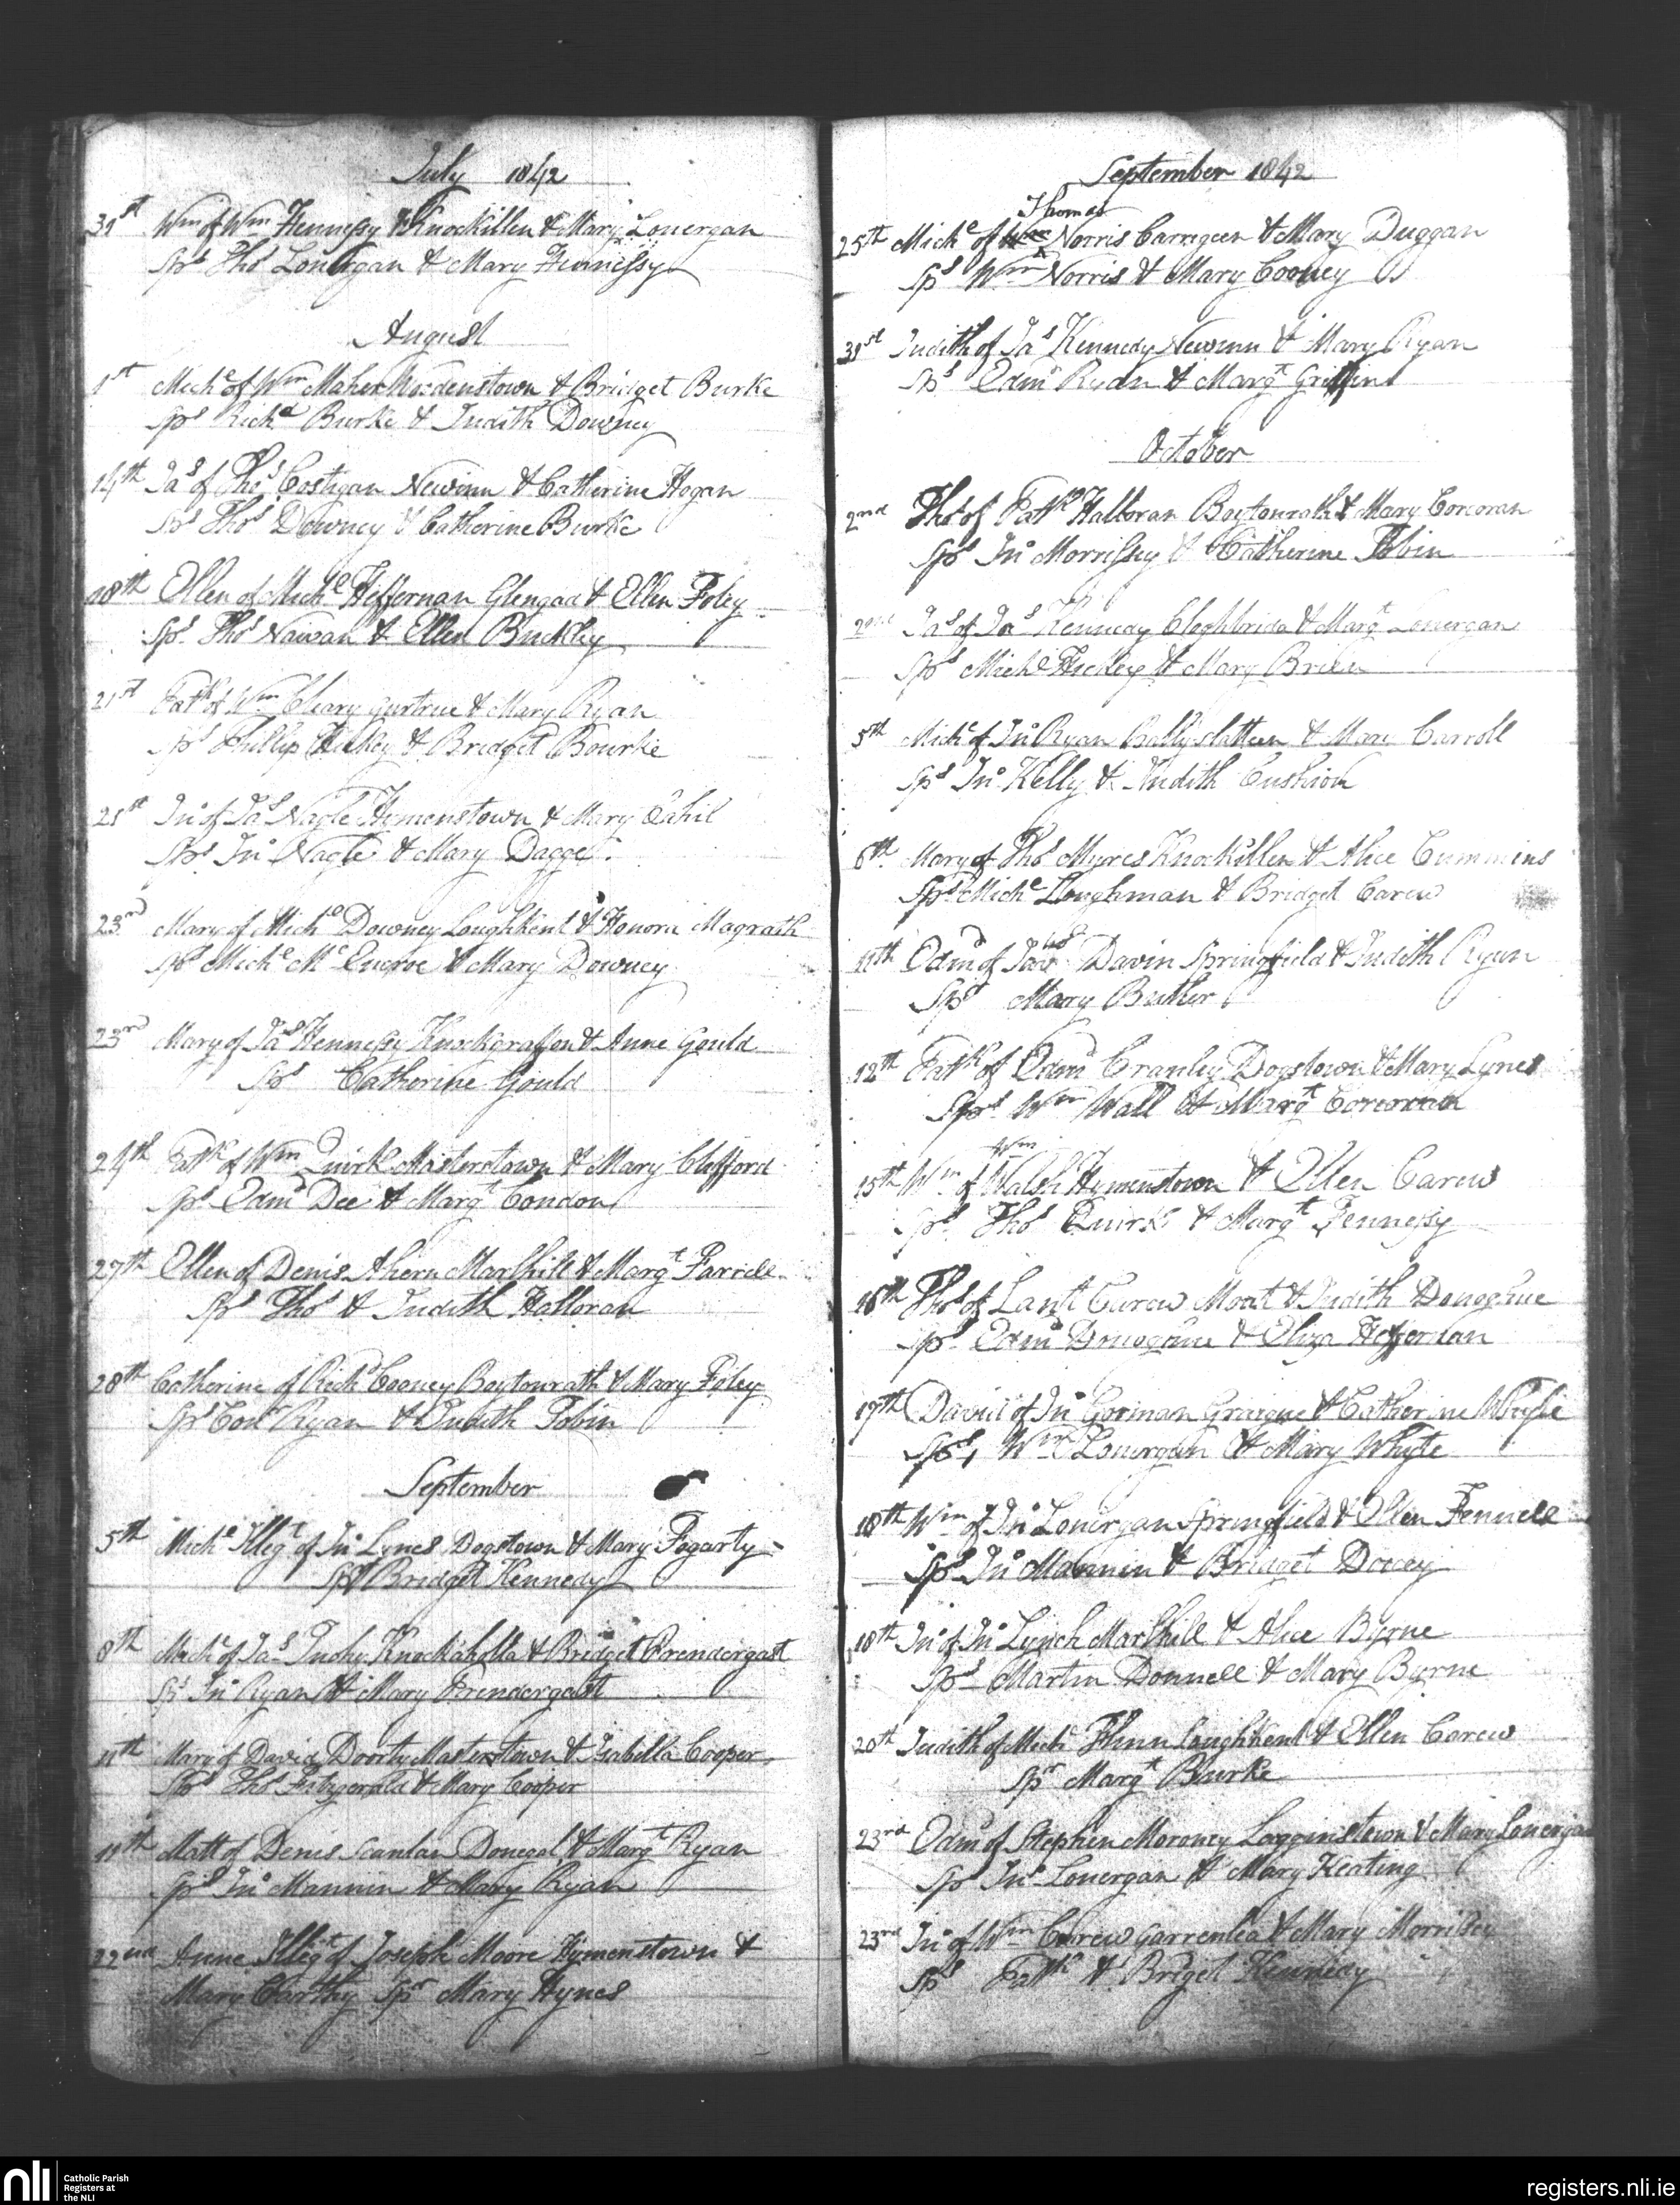 July 1842
31st Wm of Wm Hennessy Knockillen & Mary Lonergan
Sps Thos Lonergan & Mary Hennessy
August
1st Michl of Wm Maher & Bridget Burke
Sps Richd Burke & Judith Downey
14th Jas of Thos Costigan Newinn & Catherine Hogan
Sps Thos Downey & Catherine Burke
18th Ellen of Michl Heffernan Glengad & Ellen Foley
Sps Thos Nawan & Ellen Buckley
21st Patk of Wm Cleary Gurtrue & Mary Ryan
Sps Phillip Hickey & Bridget Bourke
21st Jno of Jas Nagle Hymenstown & Mary Cahil
Sps Jno Nagle & Mary
23rd Mary of Michl Downey Loughkent & Honora Magrath
Sps Michl Mc & Mary Downey
23rd Mary of Jas Hennessy Knockgraffon & Anne Gould
Sps Catherine Gould
24th Patk of Wm Quirk Masterstown & Mary Clifford
Sps Edmd Dee & Margt Condon
27th Ellen of Denis Ahern Marlhill & Margt Farrell
Sps Thos & Judith Halloran
28th Catherine of Richd Cooney Boytonrath & Mary Foley
Sps Conr Ryan & Judith Tobin
September
5th Michl Illegt of Jno Lynes Dogstown & Mary Fogarty
Spr Bridget Kennedy
8th Michl of Jas Tuohy Knockaholla & Bridget Prendergast
Sps Jno Ryan & Mary Prendergast
11th Mary of David Doorty Masterstown & Isabella Cooper
Sps Thos Fitzgerald & Mary Cooper
11th Matt of Denis Scanlan Donegal & Margt Ryan
Sps Jno Mannin & Mary Ryan
22nd Anne Illegt of Joseph Moore Hymenstown &
Mary Carthy Spr Mary Hynes
September 1842
Thomas
25th Michl of Wm Norris Carrigeen & Mary Duggan
Sps Wm Norris & Mary Cooney
31st Judith of Jas Kennedy Newinn & Mary Ryan
Sps Edmd Ryan & Margt Griffin
October
2nd Thos of Patk Halloran Boytonrath & Mary Corcoran
Sps Jno Morrissey & Catherine Tobin
2nd Jas of Jas Kennedy Cloghbrida & Margt Lonergan
Sps Michl Hickey & Mary Brien
5th Michl of Jno Ryan Ballyslatteen & Mary Carroll
Sps Jno Kelly & Judith Cushion
6th Mary of Thos Myres Knockillen & Alice Cummins
Sps Michl Loughman & Bridget Carew
11th Edmd of Jas Davin Springfield & Judith Ryan
Sps Mary Butler
12th Patk of Edmd Cranley Dogstown & Mary Lynes
Sps Wm Wall & Margt Corcoran
Wm
15th Wm of Walsh Hymenstown & Ellen Carew
Sps Thos Quirk & Margt Fennessy
16th Thos of Lant Carew Moat & Judith Donoghue
Sps Edmd Donoghue & Eliza Heffernan
17th David of Jno Gorman Graigue & Catherine Whyte
Sps, Wm Lonergan & Mary Whyte
18th Wm of Jno Lonergan Springfield & Ellen Fennell
Sps Jno Mannin & Bridget Docey
18th Jno of Jno Lynch Marlhill & Alice Byrne
Sps Martin Donnell & Mary Byrne
20th Judith of Michl Flinn Loughkent & Ellen Carew
Spr Margt Burke
23rd Edmd of Stephen Moroney Lagginstown & Mary Lonergan
Sps Jno Lonergan & Mary Keating
23rd Jno of Wm Carew Garrenlea & Mary Morrissey
Sps Patk & Briget Kennedy
nli Catholic Parish
Registers at
the NLI
registers.nli.ie